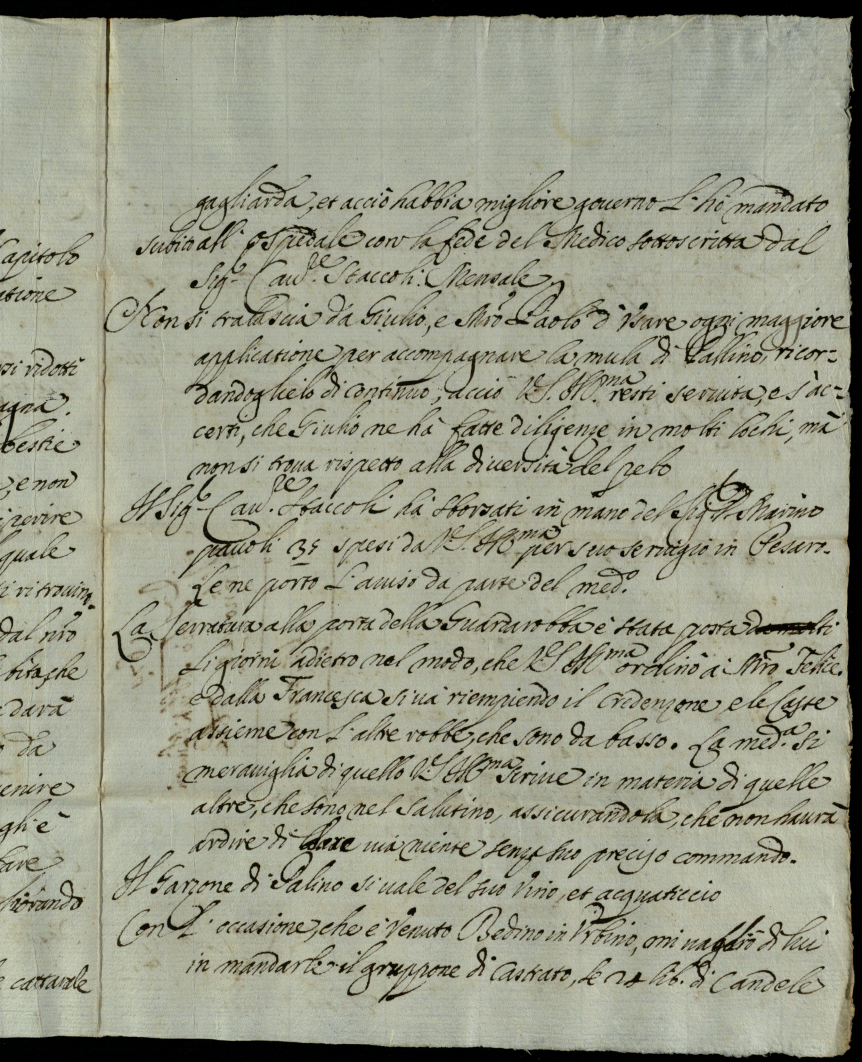 Capitolo
atione
si ridotti
agna.
bestie
, e non
perire
quale
si ritrovin.
dal nro
che
darà
da
enire
gli è
fare
e cattarale
gagliarda, et acciò habbia migliore governo l'hò mandato
subito all' ospedale con la fede del Medico sottoscritta dal
Sigr. Cavre. Staccoli Mensale
Non si tralascia da Giulio, e Mro Paolo d'usare ogni maggiore
applicatione per accompagnare la mula di Pallino, ricor-
dandoglielo di continuo, acciò V.S. Illma. resti servita, e s'ac-
certi, che Giulio ne hà fatte diligenze in molti lochi, mà
non si trova rispetto alla diversità del pelo
Il Sigr. Cavre. Staccoli hà sborsati in mano del Sigr. Marino
pavoli 35 spesi da V.S. Illma per suo servigio in Pesaro.
Le ne porto l'aviso da parte del medo.
La Serratura alla porta della Guardarobba è stata posta
li giorni adietro nel modo, che V.S. Illma ordinò à Mro Felice.
e dalla Francesca si và riempiendo il Credenzone e le Casse
assieme con l'altre robbe, che sono da basso. La meda. si
meraviglia di quello V.S. Illma scrive in materia di quelle
altre, che sono nel Salutino, assicurandola, che non haurà
ardire di dare via niente senza suo preciso commando.
Il Garzone di Palino si vale del suo Vino, et acquaticcio
Con l'occasione, che è venuto Bedino in Urbino, mi vaglio di lui
in mandarle il gruppone di Castrato, le 24 lib. di Candele